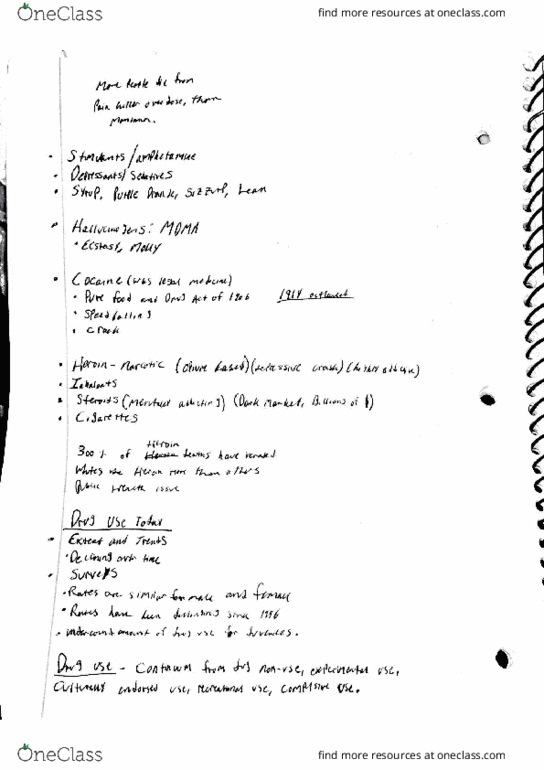 OneClass
find more resources at oneclass.com
More People die from
Pain killer overdose, than
Stimulants/amphetamine
Depressants/Sedatives
Syrup, Purple Drank, Sizzurp, Lean
Hallucinogens: MDMA
Ecstasy, Molly
Cocaine (was legal medicine)
Pure food and Drug Act of 1906 1914 outlawed
Speedballing
Crack
Heroin - Narcotic (opium based) (depressive crash) (highly addictive)
Inhalants
Steroids (Dark Market, Billions of $)
Cigarettes
300% of Heroin deaths have
Whites use Heroin more than others
Public Health issue
Drug Use Today
Extent and Trends
Declining over time
Surveys
Rates are similar for male and female
Rates have been since 1996
undercount amount of drug use for juveniles.
Drug use - Continuum from drug non-use, experimental use,
Culturally endorsed use, recreational use, compulsive use.
OneClass
find more resources at oneclass.com